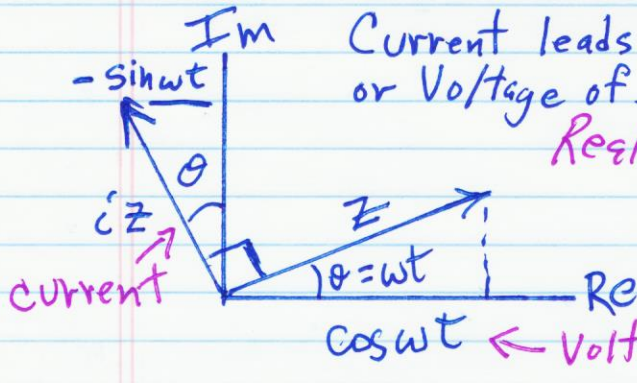 Im
Current leads
or Voltage of
-sinωt
θ
iz
z
current
θ=ωt
Re
cosωt ← Volt